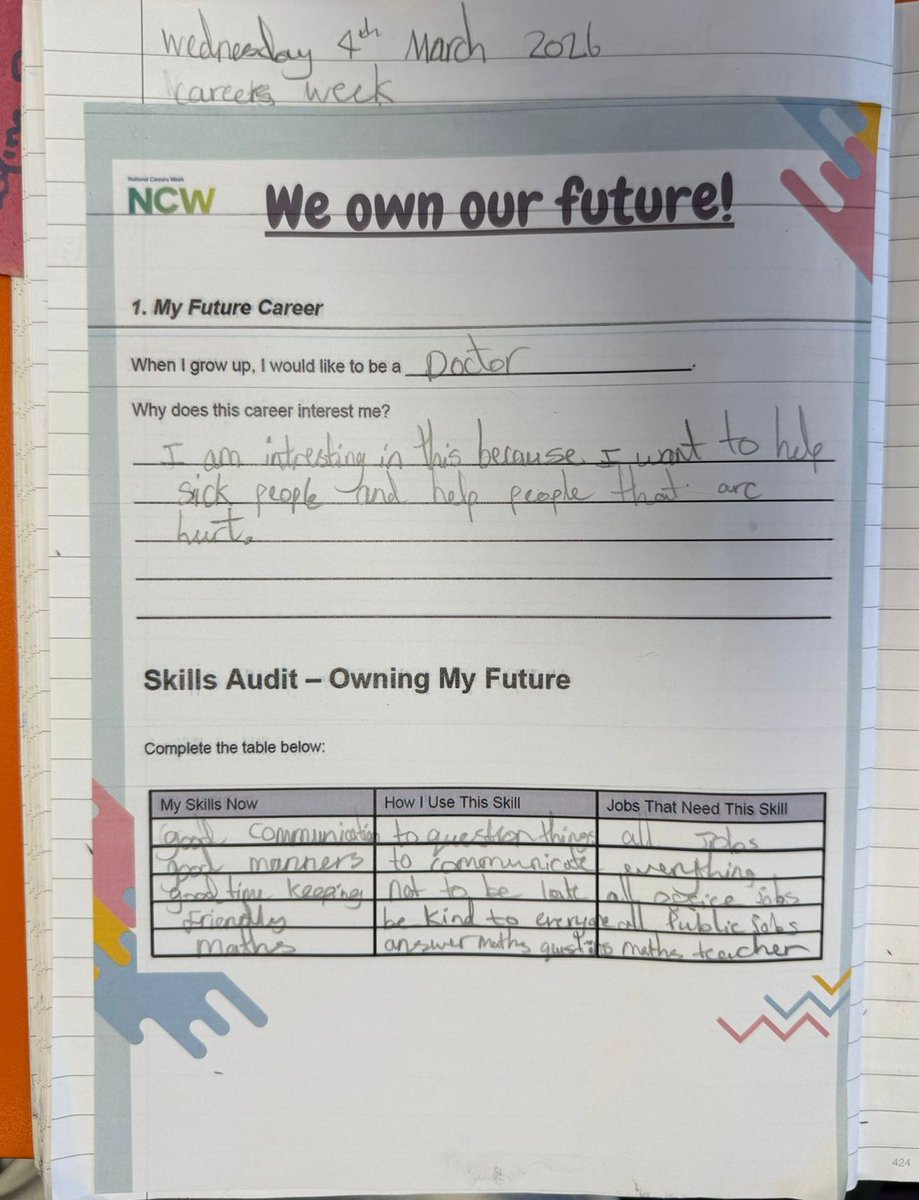 Wednesday 4th March 2026
Careers week
National Careers Week
NCW
We own our future!
1. My Future Career
When I grow up, I would like to be a Doctor.
Why does this career interest me?
I am intresting in this because I want to help
sick people and help people that are
hurt.
Skills Audit – Owning My Future
Complete the table below:
My Skills Now How I Use This Skill Jobs That Need This Skill
good communication to question things all jobs
good manners to communicate everything
good time keeping not to be late all jobs
Friendly be kind to everyone all Public jobs
maths answer maths questions maths teacher
424